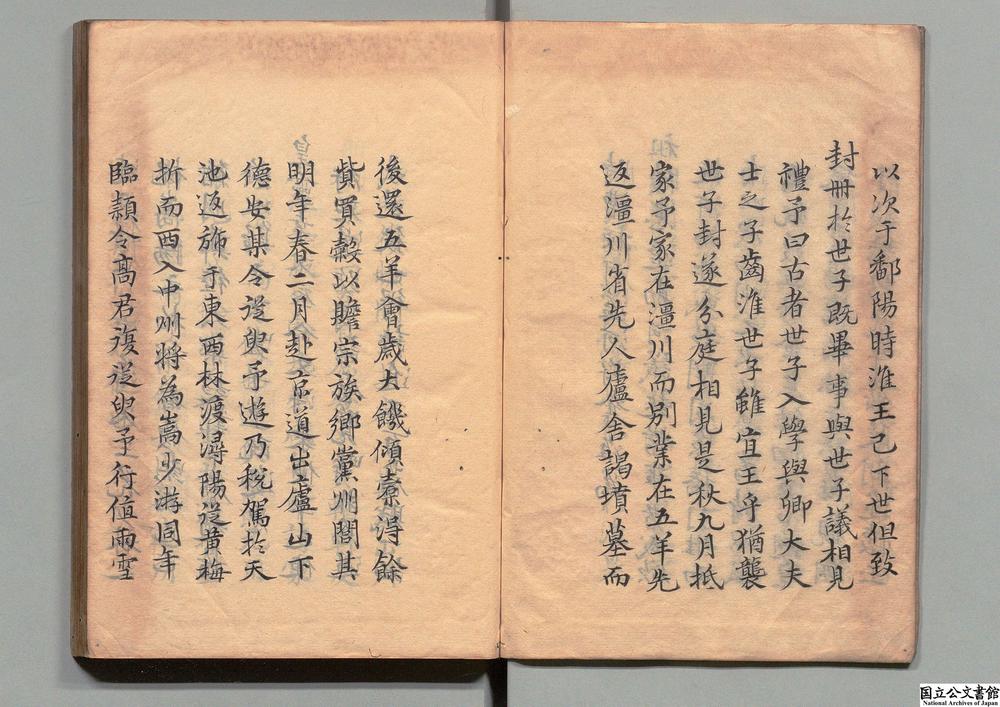 以次于鄱陽時淮王已下世但致
封冊於世子既畢事與世子議相見
禮予曰古者世子入學與卿大夫
士之子齒淮世子雖宜王乎猶襲
世子封遂分庭相見是秋九月抵
家予家在澶川而別業在五羊先
返澶川省先人廬舍謁墳墓而
後還五羊會歲大饑傾橐得餘
貲買穀以贍宗族鄉黨州閭其
明年春二月赴京道出廬山下
德安某令從臾予遊乃稅駕於天
池返斾于東西林渡潯陽從黄梅
折而西入中州將為嵩少游同年
臨潁令高君復從臾予行值雨雪
国立公文書館
National Archives of Japan